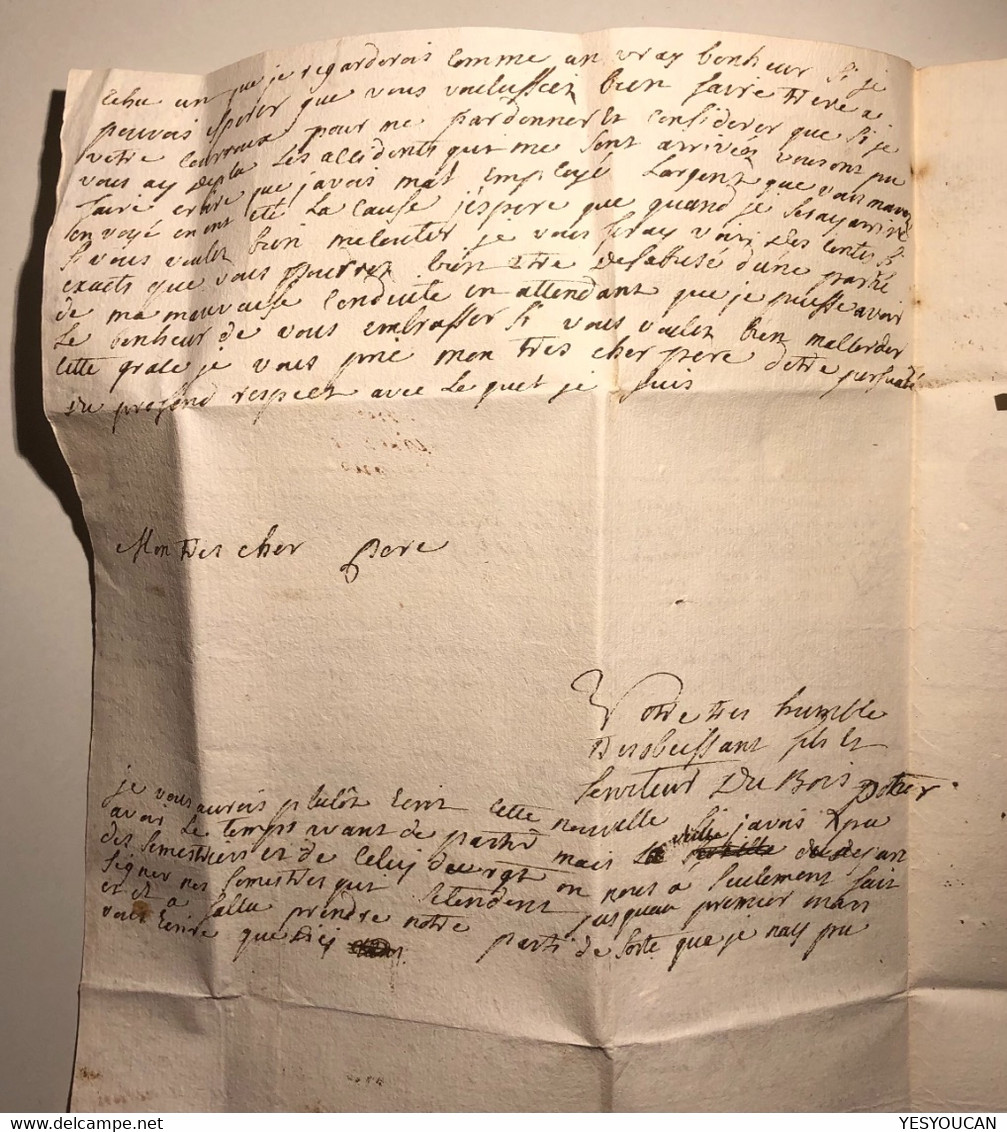 que je regarderois comme un vray bonheur si je
pouvois esperer que vous voulussiez bien faire treve a
votre courroux pour me pardonner et considerer que si je
vous ay deplu les accidents qui me sont arrivez vous ont pu
faire croire que j'avois mal employé l'argent que vous mavez
envoyé en ont été la cause j'espere que quand je seray arrivé
si vous voulez bien mecouter je vous feray voir des contes si
exacts que vous pourrez bien etre desabusé d'une partie
de ma mauvaise conduite en attendant que je puisse avoir
le bonheur de vous embrasser si vous voulez bien maccorder
cette grace je vous prie mon tres cher pere detre persuadé
du profond respect avec le quel je suis
Mon tres cher pere
Votre tres humble
tres obeissant fils et
serviteur Du Bois
je vous aurois plutôt ecrit cette nouvelle si javois pu
avoir le temps avant de partir mais la veille du depart
des semestriers et de celuy du rgt on nous a seulement fait
signer nos semestres qui setendent jusquau premier mars
et il a fallu prendre notre parti de sorte que je nay pu
vous ecrire que dicy
YESYOUCAN